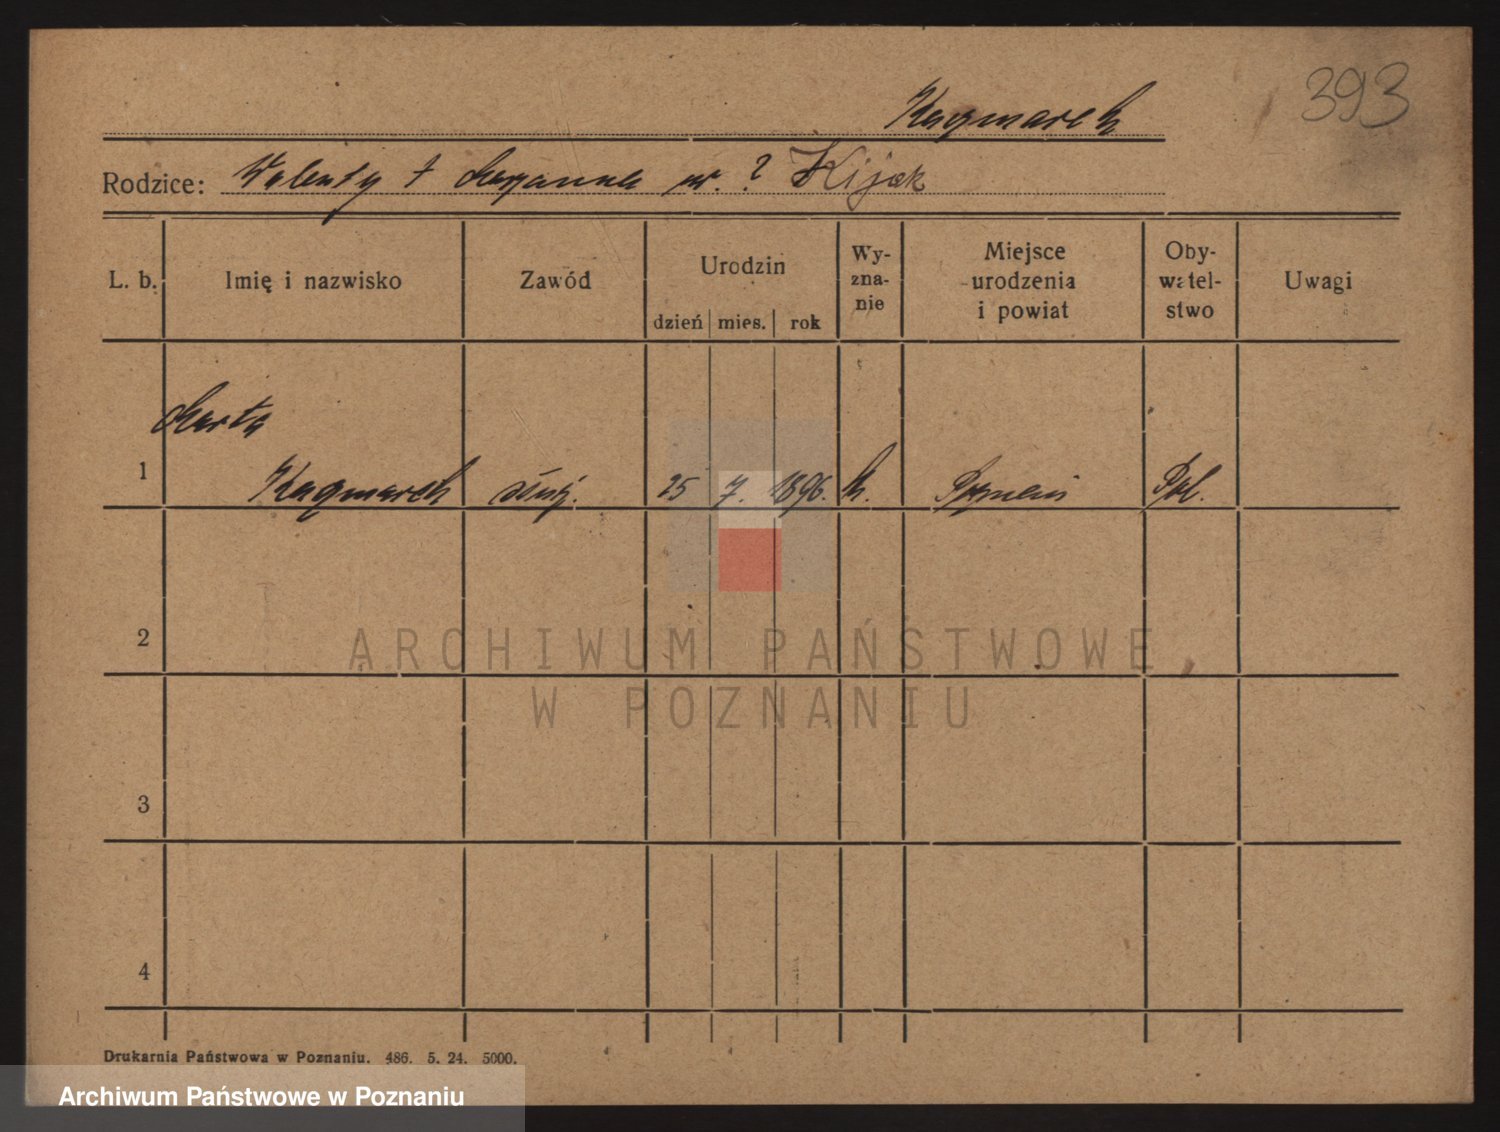 393
Kaczmarek
Rodzice: Walenty † Maryanna ur. ? Kijak
L. b. Imię i nazwisko Zawód Urodzin Wy- Miejsce Oby- Uwagi
zna- urodzenia watel-
nie i powiat stwo
dzień mies. rok
Marta
1 Kaczmarek służ. 25 7. 1896. k. Poznań Pol.
2
ARCHIWUM PAŃSTWOWE
W POZNANIU
3
4
Drukarnia Państwowa w Poznaniu. 486. 5. 24. 5000.
Archiwum Państwowe w Poznaniu